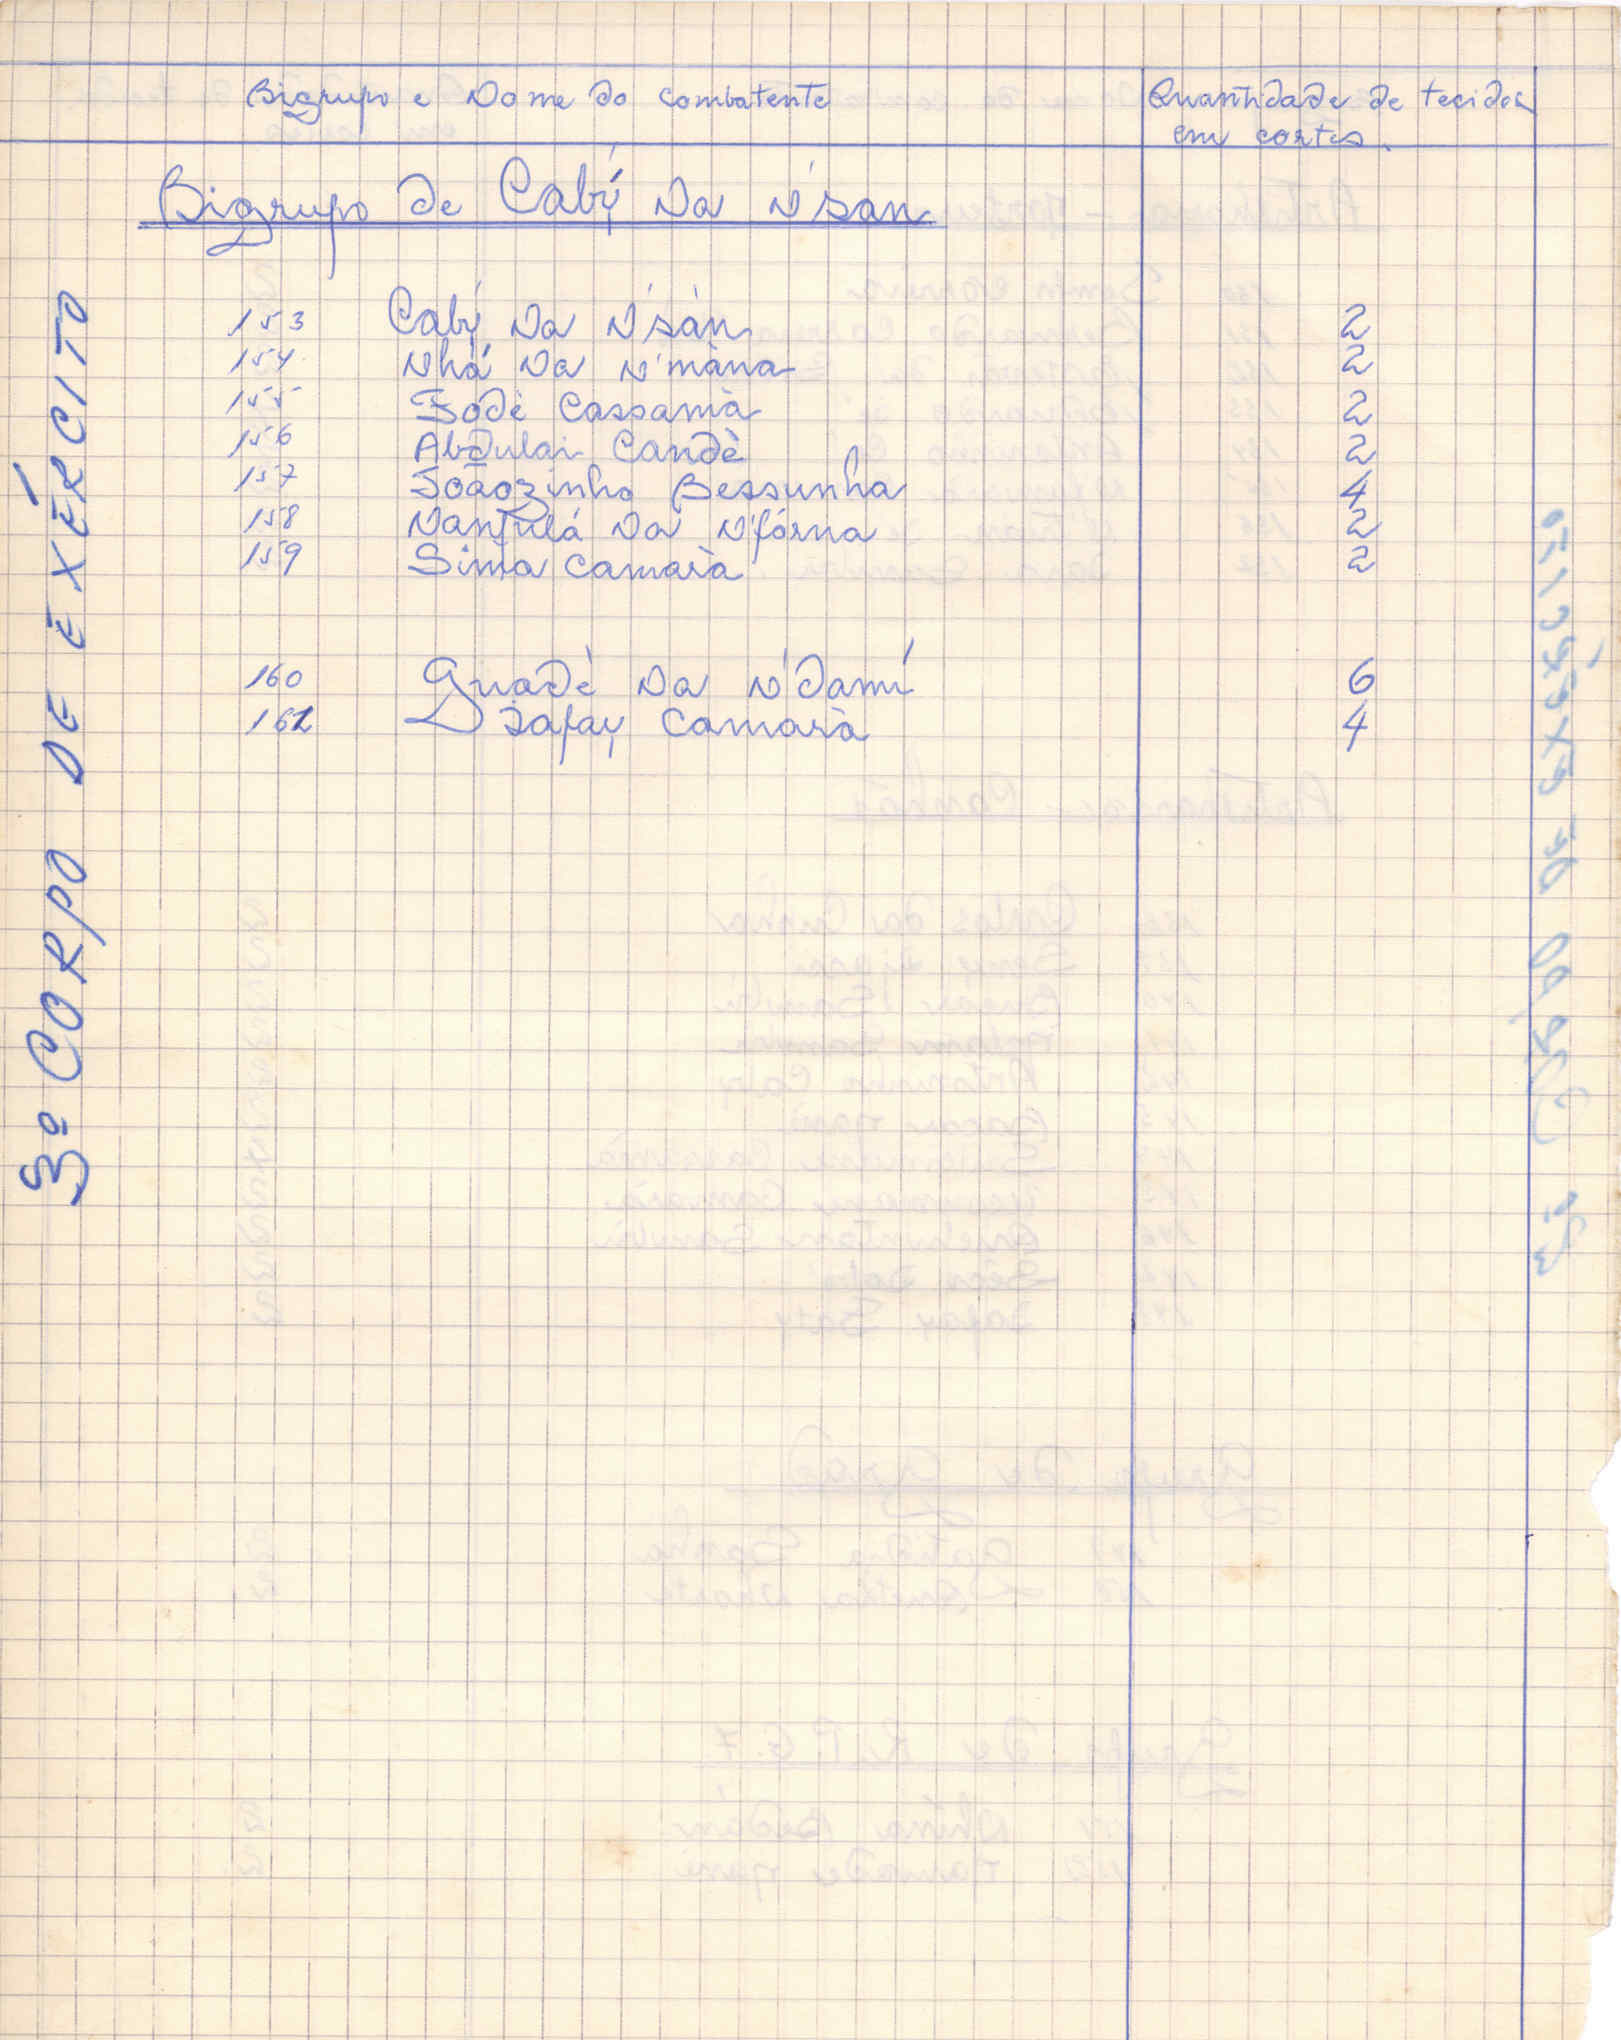 3º CORPO DE EXÉRCITO
Bigrupo e Nome do combatente
Quantidade de tecidos
em cortes.
Bigrupo de Cabí Na N'san
153 Cabí Na N'sàn 2
154 Nhá Na N'màna 2
155 Fodè Cassamà 2
156 Abdulai Candè 2
157 Joãozinho Bessunha 4
158 Nanfulá Na N'fórna 2
159 Sima Camarà 2
160 Guadè Na N'damí 6
161 Jafay Camarà 4